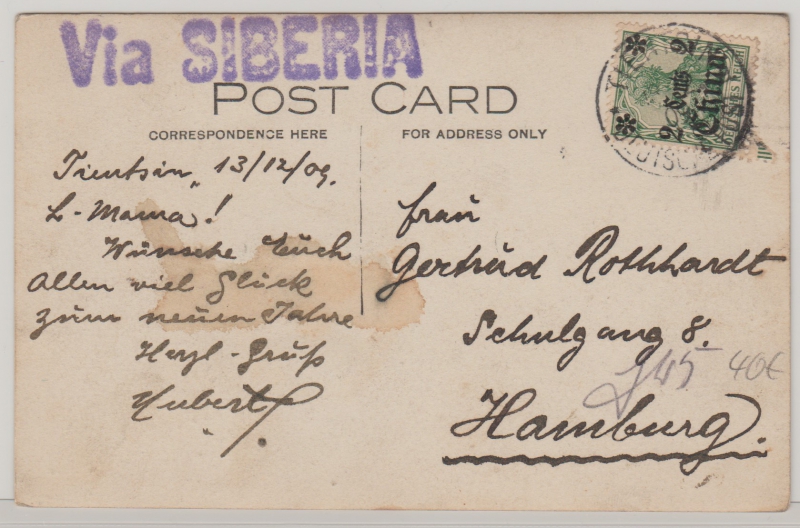 Via SIBERIA
POST CARD
CORRESPONDENCE HERE
FOR ADDRESS ONLY
2 Cents 2
China
DEUTSCHES REICH
Tientsin, 13/12/09.
L-Mama!
Wünsche Euch
Allen viel Glück
zum neuen Jahre
Herzl-Gruß
Hubert
Frau
Gertrud Rothhardt
Schulgang 8.
40€
Hamburg.